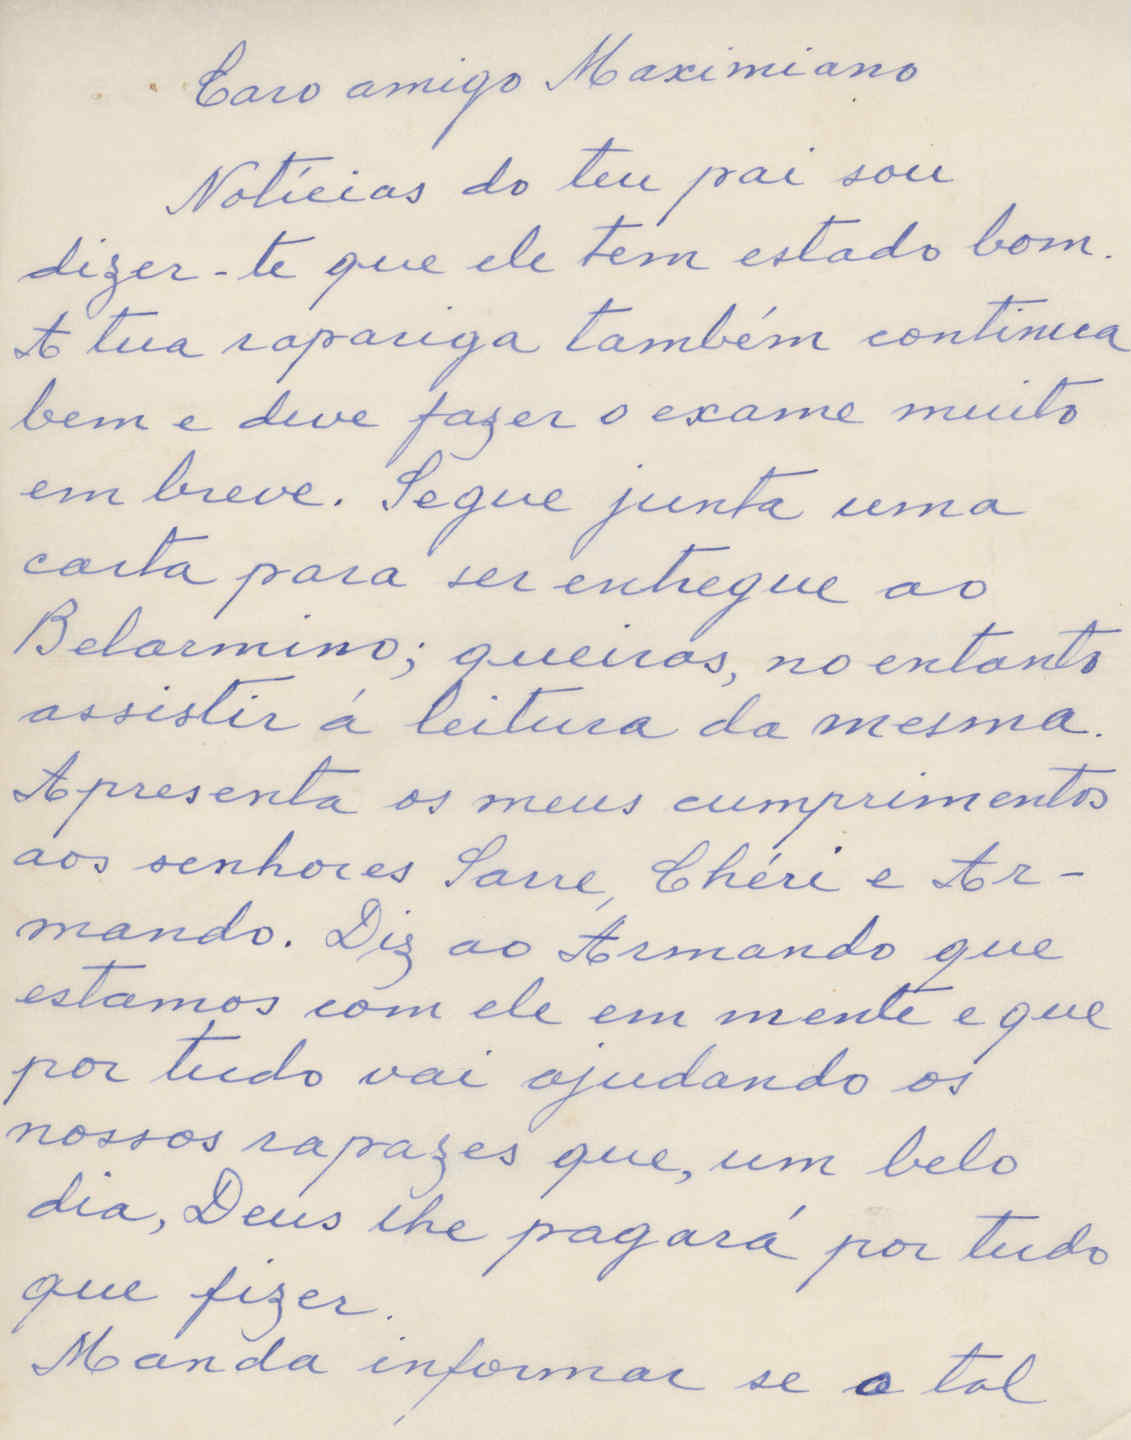 Caro amigo Maximiano
Notícias do teu pai sou
dizer-te que ele tem estado bom.
A tua rapariga também continua
bem e deve fazer o exame muito
em breve. Segue junta uma
carta para ser entregue ao
Belarmino; queiras, no entanto
assistir á leitura da mesma.
Apresenta os meus cumprimentos
aos senhores Sarre, Chéri e Ar-
mando. Diz ao Armando que
estamos com ele em mente e que
por tudo vai ajudando os
nossos rapazes que, um belo
dia, Deus lhe pagará por tudo
que fizer.
Manda informar se o tal